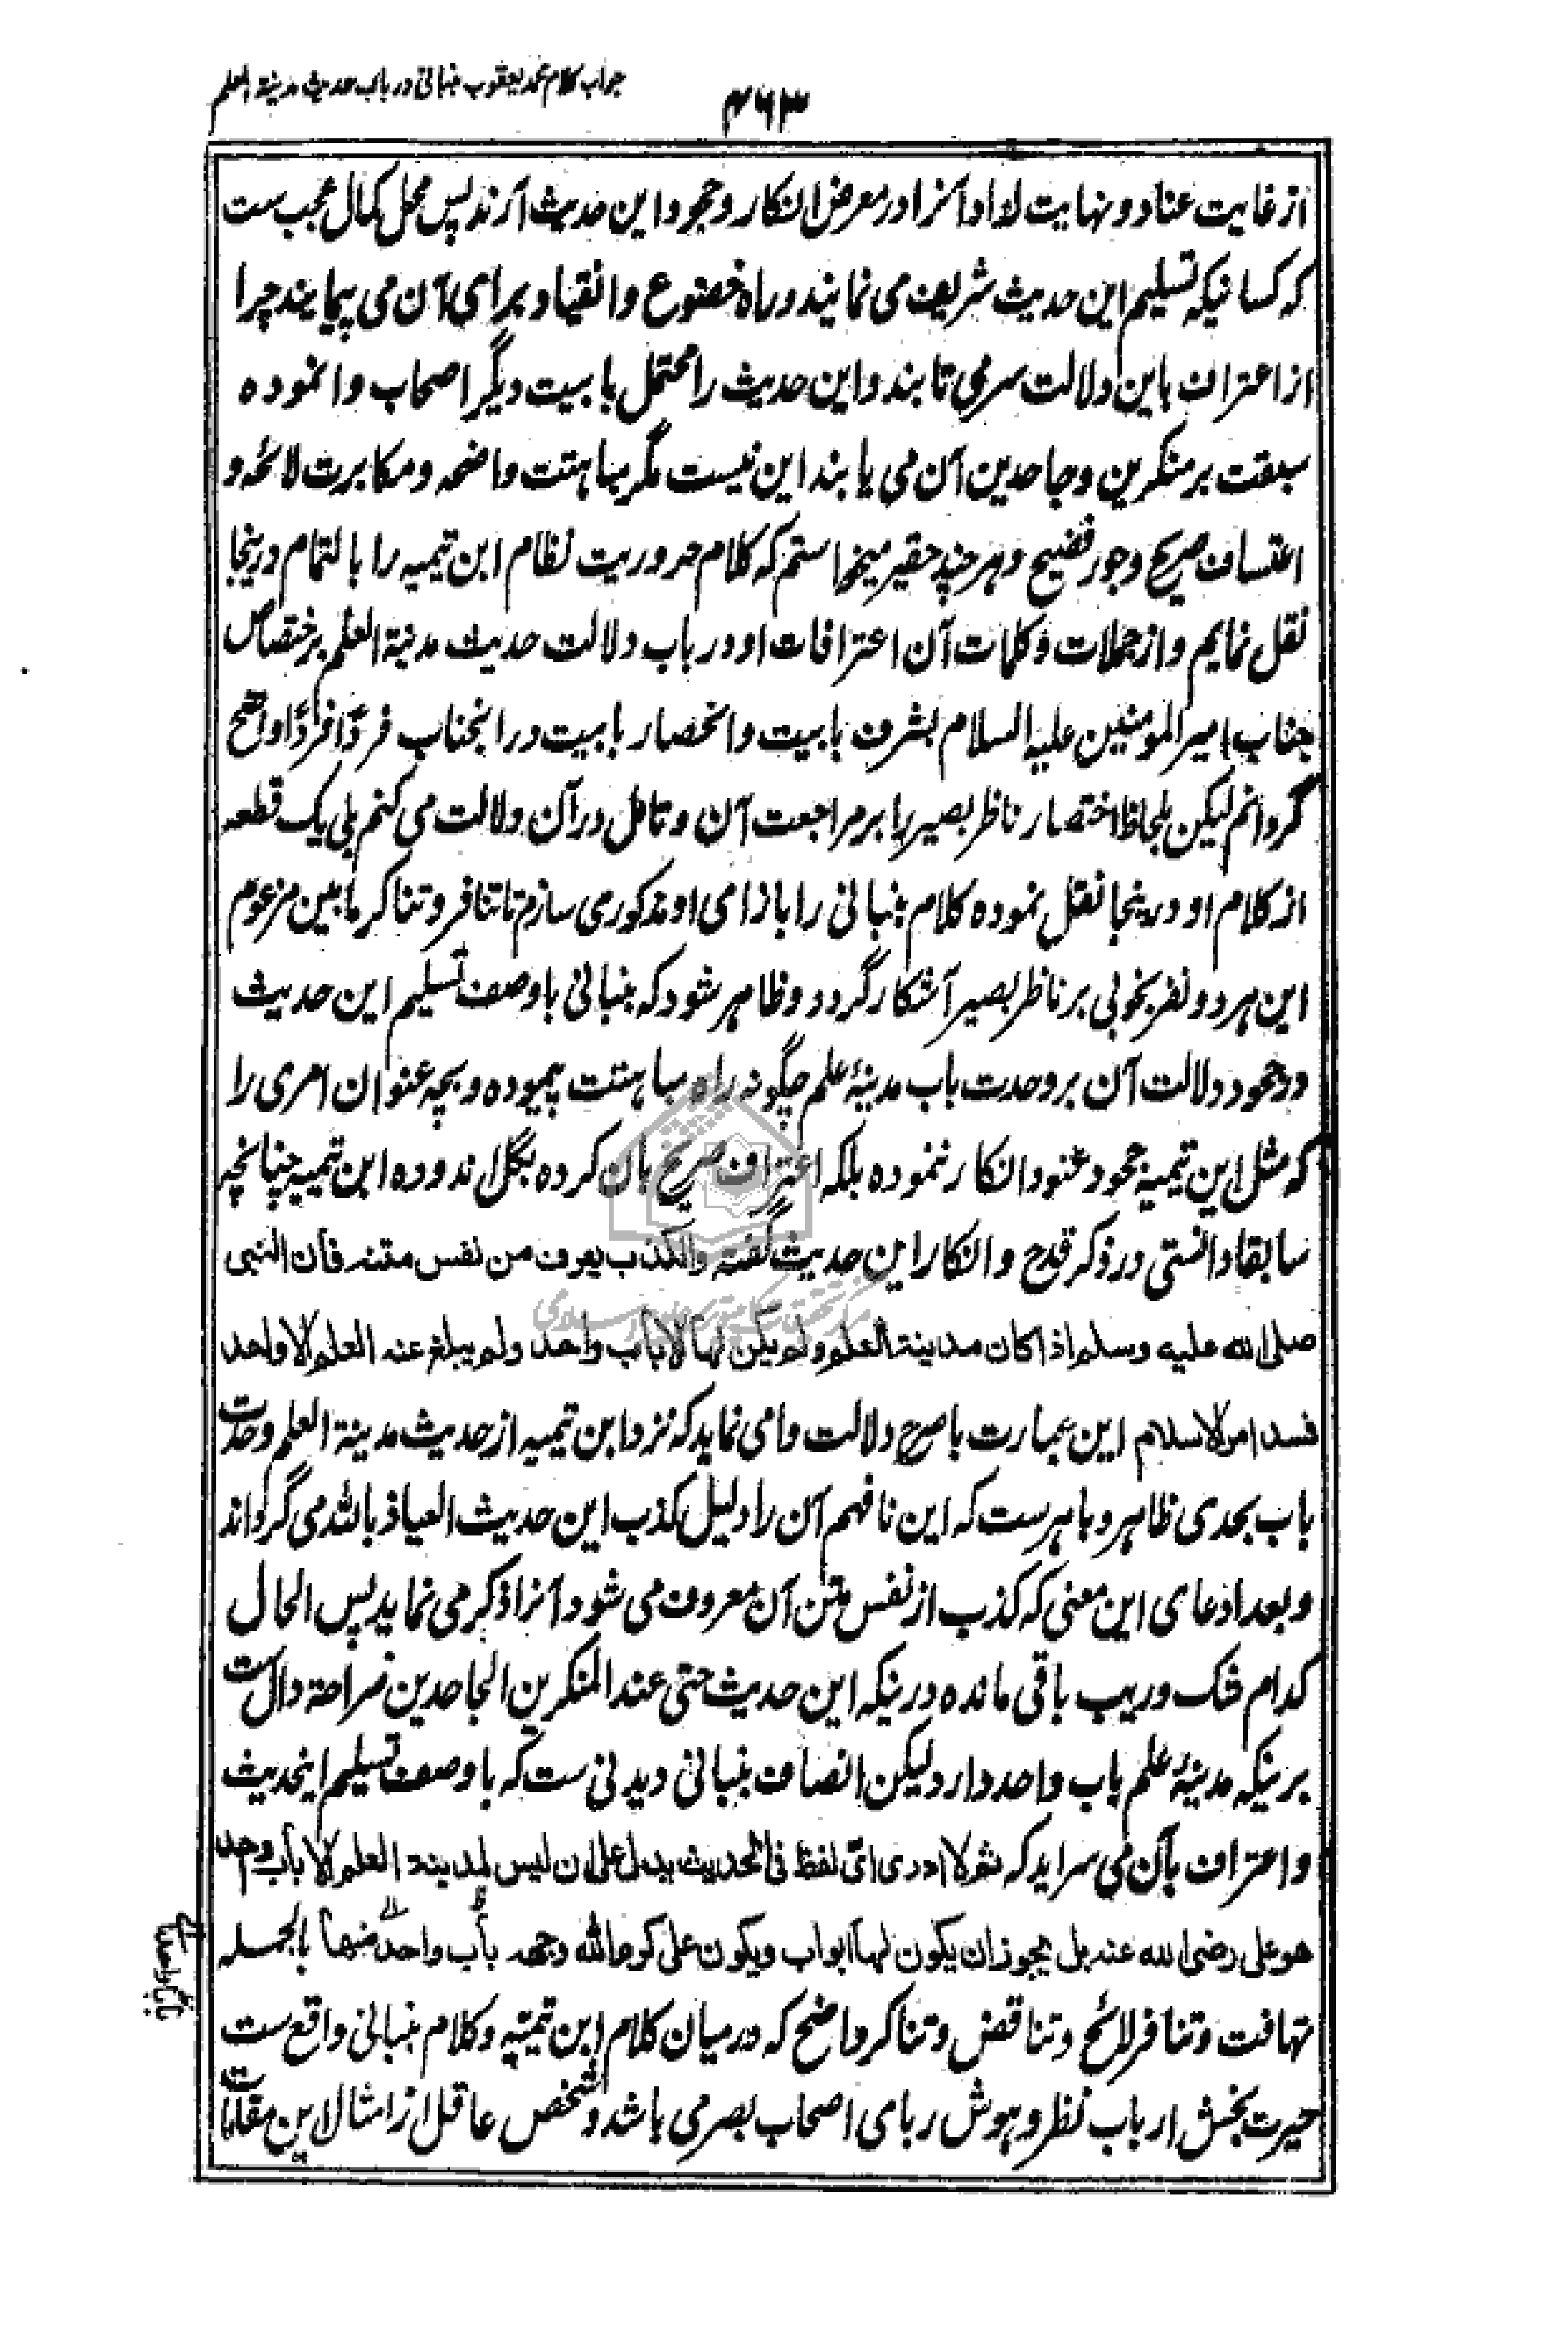 جواب کلام محمد یعقوب بنبانی در باب حدیث مدینة العلم
۴۶۳
از غایت عناد و نهایت لداد آنرا در معرض انکار و جحود این حدیث آرند پس محل کمال عجب ست
که کسانیکه تسلیم این حدیث شریف می نمایند و راه خضوع و انقیاد برای آن می پیمایند چرا
از اعتراف باین دلالت سر می تابند و این حدیث را محتمل بابیت دیگر اصحاب وانموده
سبقت بر منکرین و جاحدین آن می یابند این نیست مگر مباهتت واضحه و مکابرت لائحه و
اعتساف صریح و جور فضیح و هر چند حقیر میخواستم که کلام حروریت نظام ابن تیمیه را بالتمام درینجا
نقل نمایم و از جملات و کلمات آن اعترافات او در باب دلالت حدیث مدینة العلم بر اختصاص
جناب امیر المومنین علیه السلام بشرف بابیت و انحصار بابیت در انجناب فردًا فردًا واضح
گردانم لیکن بلحاظ اختصار ناظر بصیر را بر مراجعت آن و تامل در آن دلالت می کنم بلی یک قطعه
از کلام او درینجا نقل نموده کلام بنبانی را بازای او مذکور می سازم تا تنافر و تناکر مابین مزعوم
این هر دو نفر بخوبی بر ناظر بصیر آشکار گردد و ظاهر شود که بنبانی باوصف تسلیم این حدیث
در جحود دلالت آن بر وحدت باب مدینهٔ علم چگونه راه مباهتت پیموده و بچه عنوان امری را
که مثل ابن تیمیه جحود عنود انکار ننموده بلکه اعتراف صریح بآن کرده بگل اندوده ابن تیمیه چنانچه
سابقا دانستی در ذکر قدح و انکار این حدیث گفته والکذب یعرف من نفس متنه فان النبی
صلی الله علیه وسلم اذا کان مدینة العلم ولم یکن لها الا باب واحد ولم یبلغ عنه العلم الا واحد
فسد امر الاسلام این عبارت باصرح دلالت وامی نماید که نزد ابن تیمیه از حدیث مدینة العلم وحدت
باب بحدی ظاهر و باهرست که این نافهم آن را دلیل کذب این حدیث العیاذ بالله می گرداند
و بعد ادعای این معنی که کذب از نفس متن آن معروف می شود آنرا ذکر می نماید پس الحال
کدام شک و ریب باقی مانده درینکه این حدیث حتی عند المنکرین الجاحدین صراحة دال ست
برینکه مدینهٔ علم باب واحد دارد لیکن انصاف بنبانی دیدنی ست که باوصف تسلیم اینحدیث
و اعتراف بآن می سراید که ثم لا ادری ای لفظ فی الحدیث یدل علی ان لیس لمدینة العلم الا باب واحد
هو علی رضی الله عنه بل یجوز ان یکون لها ابواب ویکون علی کرم الله وجهه باب واحد منها بالجمله
تهافت و تنافر لائح و تناقض و تناکر واضح که درمیان کلام ابن تیمیه و کلام بنبانی واقع ست
حیرت بخش ارباب نظر و هوش ربای اصحاب بصر می باشد و شخص عاقل از امثال این مقامات